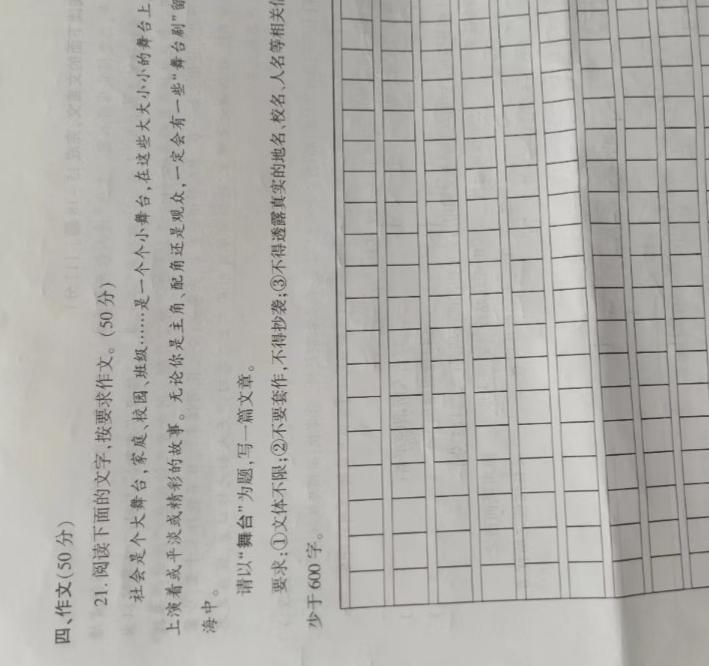 四、作文(50分)
21. 阅读下面的文字,按要求作文。(50分)
社会是个大舞台,家庭、校园、班级……是一个个小舞台,在这些大大小小的舞台上
上演着或平淡或精彩的故事。无论你是主角、配角还是观众,一定会有一些“舞台剧”留
海中。
请以“舞台”为题,写一篇文章。
要求:①文体不限;②不要套作,不得抄袭;③不得透露真实的地名、校名、人名等相关
少于600字。